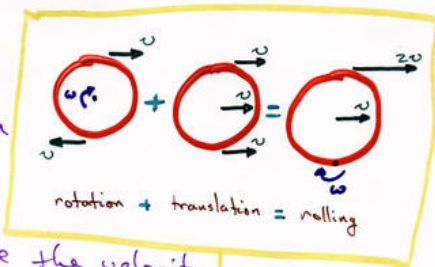 v v 2v
ω + v = v
v v ω
rotation + translation = rolling
e the velocit